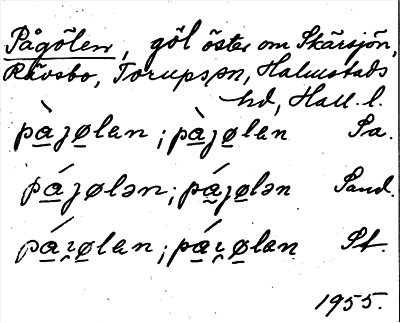 Pågölen, göl öster om Skärsjön,
Rävsbo, Torups sn, Halmstads
hd, Hall. l.
pàjølen ; pàjølen Sa.
pájølən ; pájølən Sand.
páɩ̯ølen ; páɩ̯ølen St.
1955.